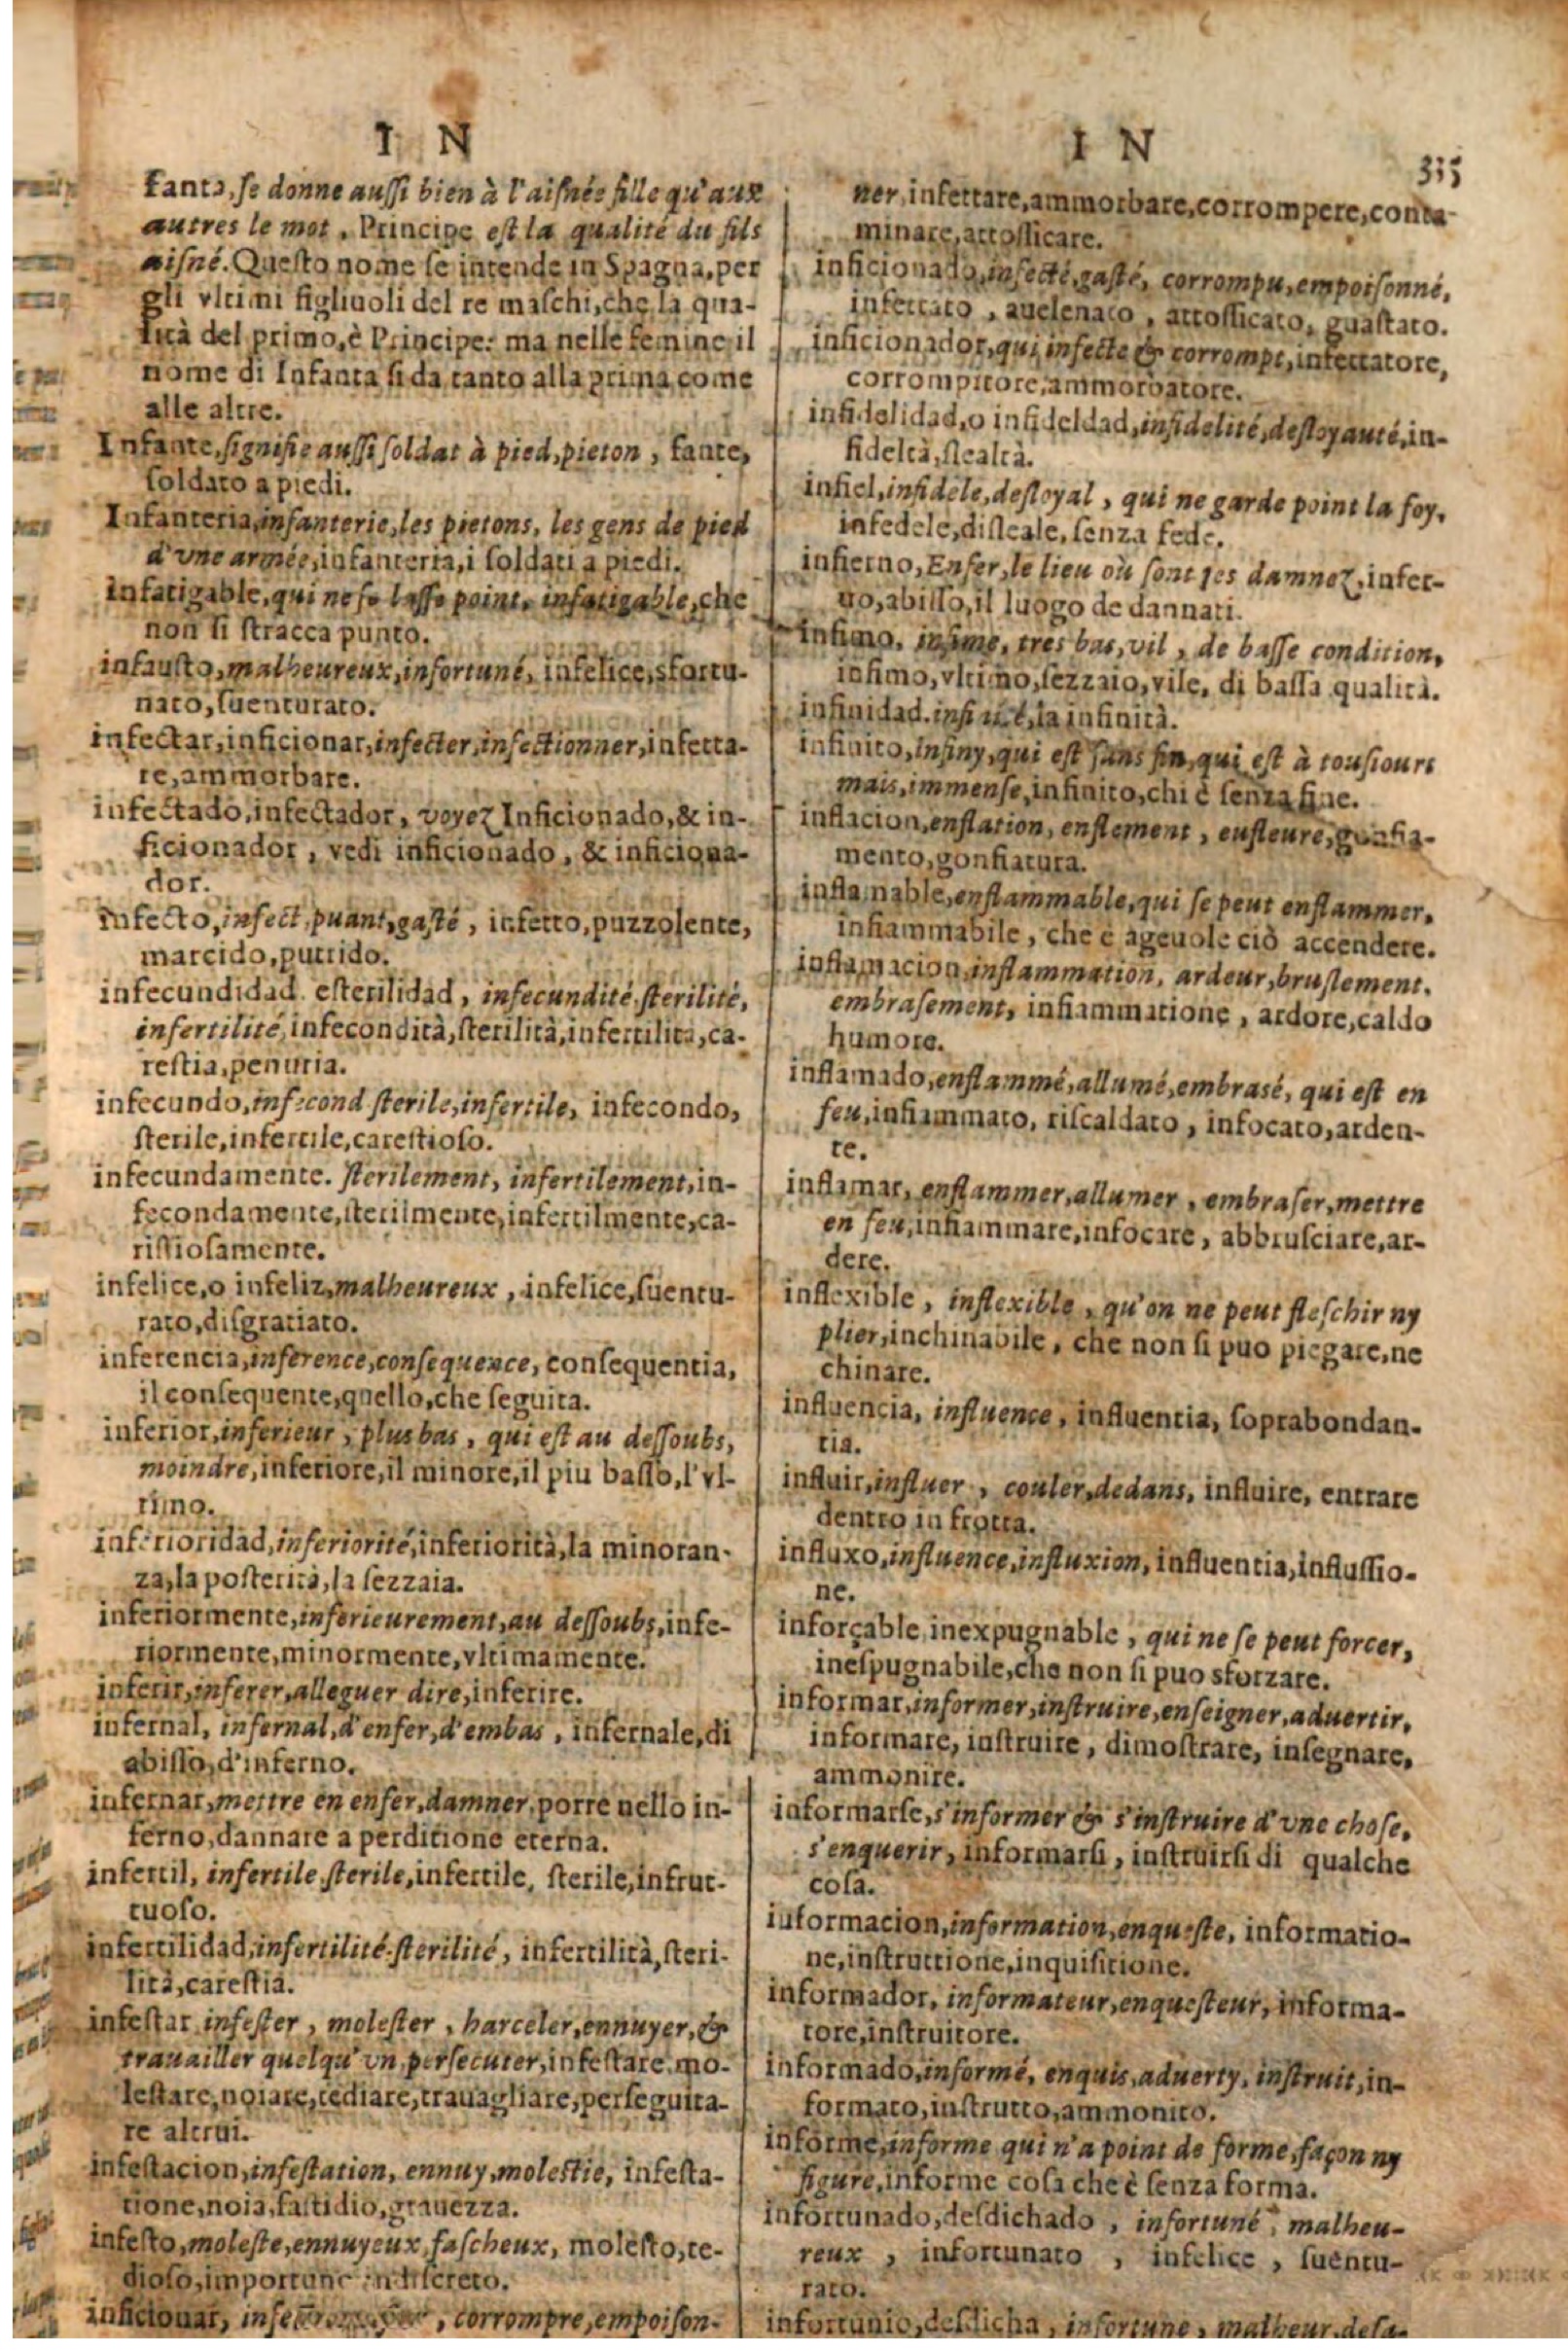 I N
fanta, se donne aussi bien à l'aisnée fille qu'aux
autres le mot, Principe est la qualité du fils
aisné. Questo nome se intende in Spagna, per
gli vltimi figliuoli del re maschi, che la qua-
lità del primo, è Principe: ma nelle femine il
nome di Infanta si da tanto alla prima come
alle altre.
Infante, signifie aussi soldat à pied, pieton, fante,
soldato a piedi.
Infanteria, infanterie, les pietons, les gens de pied
d'vne armée, infanteria, i soldati a piedi.
infatigable, qui ne se lasse point, infatigable, che
non si stracca punto.
infausto, malheureux, infortuné, infelice, sfortu-
nato, suenturato.
infectar, inficionar, infecter, infectionner, infetta-
re, ammorbare.
infectado, infectador, voyez Inficionado, & in-
ficionador, vedi inficionado, & inficiona-
dor.
infecto, infect, puant, gasté, infetto, puzzolente,
marcido, putrido.
infecundidad, esterilidad, infecundité, sterilité,
infertilité, infecondità, sterilità, infertilità, ca-
restia, penuria.
infecundo, infecond sterile, infertile, infecondo,
sterile, infertile, carestioso.
infecundamente. sterilement, infertilement, in-
fecondamente, sterilmente, infertilmente, ca-
ristiosamente.
infelice, o infeliz, malheureux, infelice, suentu-
rato, disgratiato.
inferencia, inference, consequence, consequentia,
il consequente, quello, che seguita.
inferior, inferieur, plus bas, qui est au dessoubs,
moindre, inferiore, il minore, il piu basso, l'vl-
timo.
inferioridad, inferiorité, inferiorità, la minoran-
za, la posterità, la sezzaia.
inferiormente, inferieurement, au dessoubs, infe-
riormente, minormente, vltimamente.
inferir, inferer, alleguer dire, inferire.
infernal, infernal, d'enfer, d'embas, infernale, di
abisso, d'inferno.
infernar, mettre en enfer, damner, porre nello in-
ferno, dannare a perditione eterna.
infertil, infertile, sterile, infertile, sterile, infrut-
tuoso.
infertilidad, infertilité, sterilité, infertilità, steri-
lità, carestia.
infestar, infester, molester, harceler, ennuyer, &
trauailler quelqu'vn, persecuter, infestare, mo-
lestare, noiare, tediare, trauagliare, perseguita-
re altrui.
infestacion, infestation, ennuy, molestie, infesta-
tione, noia, fastidio, grauezza.
infesto, moleste, ennuyeux, fascheux, molesto, te-
dioso, importuno indiscreto.
inficionar, corrompre, empoison-
I N
335
ner, infettare, ammorbare, corrompere, conta-
minare, attossicare.
inficionado, infecté, gasté, corrompu, empoisonné,
infettato, auelenato, attossicato, guastato.
inficionador, qui infecte & corrompt, infettatore,
corrompitore, ammorbatore.
infidelidad, o infideldad, infidelité, desloyauté, in-
fideltà, slealtà.
infiel, infidele, desloyal, qui ne garde point la foy,
infedele, disleale, senza fede.
infierno, Enfer, le lieu où sont les damnez, infer-
no, abisso, il luogo de dannati.
infimo, infime, tres bas, vil, de basse condition,
infimo, vltimo, sezzaio, vile, di bassa qualità.
infinidad. infinité, la infinità.
infinito, infiny, qui est sans fin, qui est à tousiours
mais, immense, infinito, chi è senza fine.
inflacion, enflation, enflement, enfleure, gonfia-
mento, gonfiatura.
inflamable, enflammable, qui se peut enflammer,
infiammabile, che è ageuole ciò accendere.
inflamacion, inflammation, ardeur, bruslement,
embrasement, infiammatione, ardore, caldo
humore.
inflamado, enflammé, allumé, embrasé, qui est en
feu, infiammato, riscaldato, infocato, arden-
te.
inflamar, enflammer, allumer, embraser, mettre
en feu, infiammare, infocare, abbrusciare, ar-
dere.
inflexible, inflexible, qu'on ne peut fleschir ny
plier, inchinabile, che non si puo piegare, ne
chinare.
influencia, influence, influentia, soprabondan-
tia.
influir, influer, couler, dedans, influire, entrare
dentro in frotta.
influxo, influence, influxion, influentia, influssio-
ne.
inforçable, inexpugnable, qui ne se peut forcer,
inespugnabile, che non si puo sforzare.
informar, informer, instruire, enseigner, aduertir,
informare, instruire, dimostrare, insegnare,
ammonire.
informarse, s'informer & s'instruire d'vne chose,
s'enquerir, informarsi, instruirsi di qualche
cosa.
informacion, information, enqueste, informatio-
ne, instruttione, inquisitione.
informador, informateur, enquesteur, informa-
tore, instruitore.
informado, informé, enquis, aduerty, instruit, in-
formato, instrutto, ammonito.
informe, informe qui n'a point de forme, façon ny
figure, informe cosa che è senza forma.
infortunado, desdichado, infortuné, malheu-
reux, infortunato, infelice, suentu-
rato.
infortunio, desdicha, infortune, malheur, desa-